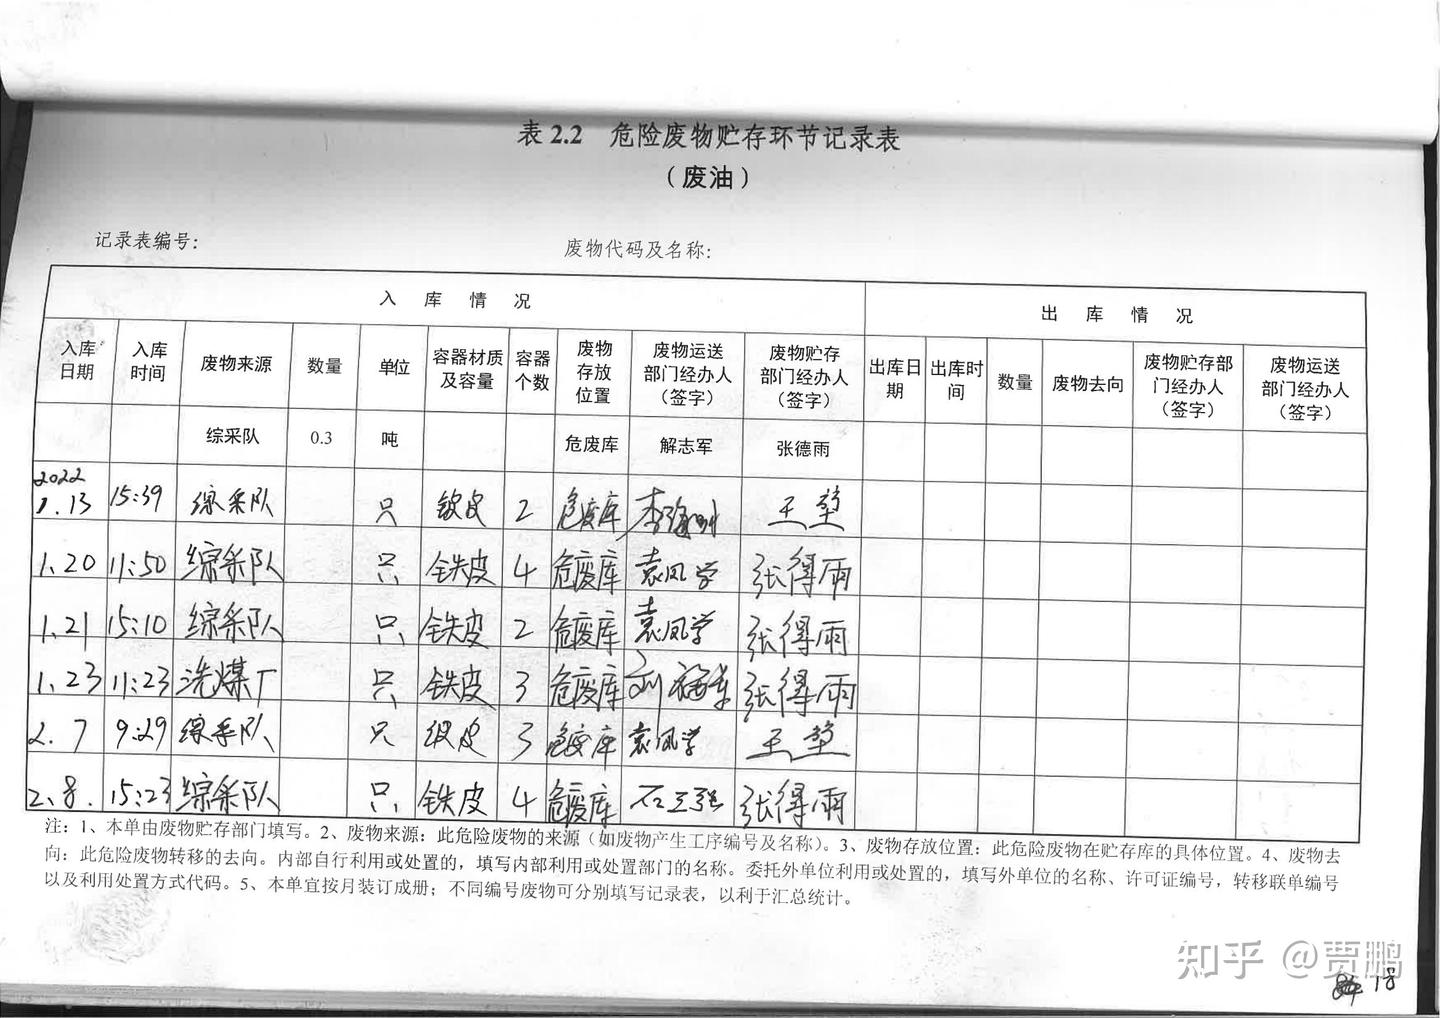 表 2.2 危险废物贮存环节记录表
（废油）
记录表编号: 废物代码及名称:
入 库 情 况 出 库 情 况
入库日期 入库时间 废物来源 数量 单位 容器材质及容量 容器个数 废物存放位置 废物运送部门经办人（签字） 废物贮存部门经办人（签字） 出库日期 出库时间 数量 废物去向 废物贮存部门经办人（签字） 废物运送部门经办人（签字）
综采队 0.3 吨 危废库 解志军 张德雨
2022
1.13 15:39 综采队 只 铁皮 2 危废库 王堃
1.20 11:50 综采队 只 铁皮 4 危废库 袁凤学 张得雨
1.21 15:10 综采队 只 铁皮 2 危废库 袁凤学 张得雨
1.23 11:23 洗煤厂 只 铁皮 3 危废库 张得雨
2.7 9:29 综采队 只 铁皮 3 危废库 袁凤学 王堃
2.8. 15:23 综采队 只 铁皮 4 危废库 张得雨
注：1、本单由废物贮存部门填写。2、废物来源：此危险废物的来源（如废物产生工序编号及名称）。3、废物存放位置：此危险废物在贮存库的具体位置。4、废物去
向：此危险废物转移的去向。内部自行利用或处置的，填写内部利用或处置部门的名称。委托外单位利用或处置的，填写外单位的名称、许可证编号，转移联单编号
以及利用处置方式代码。5、本单宜按月装订成册；不同编号废物可分别填写记录表，以利于汇总统计。
知乎 @贾鹏
18